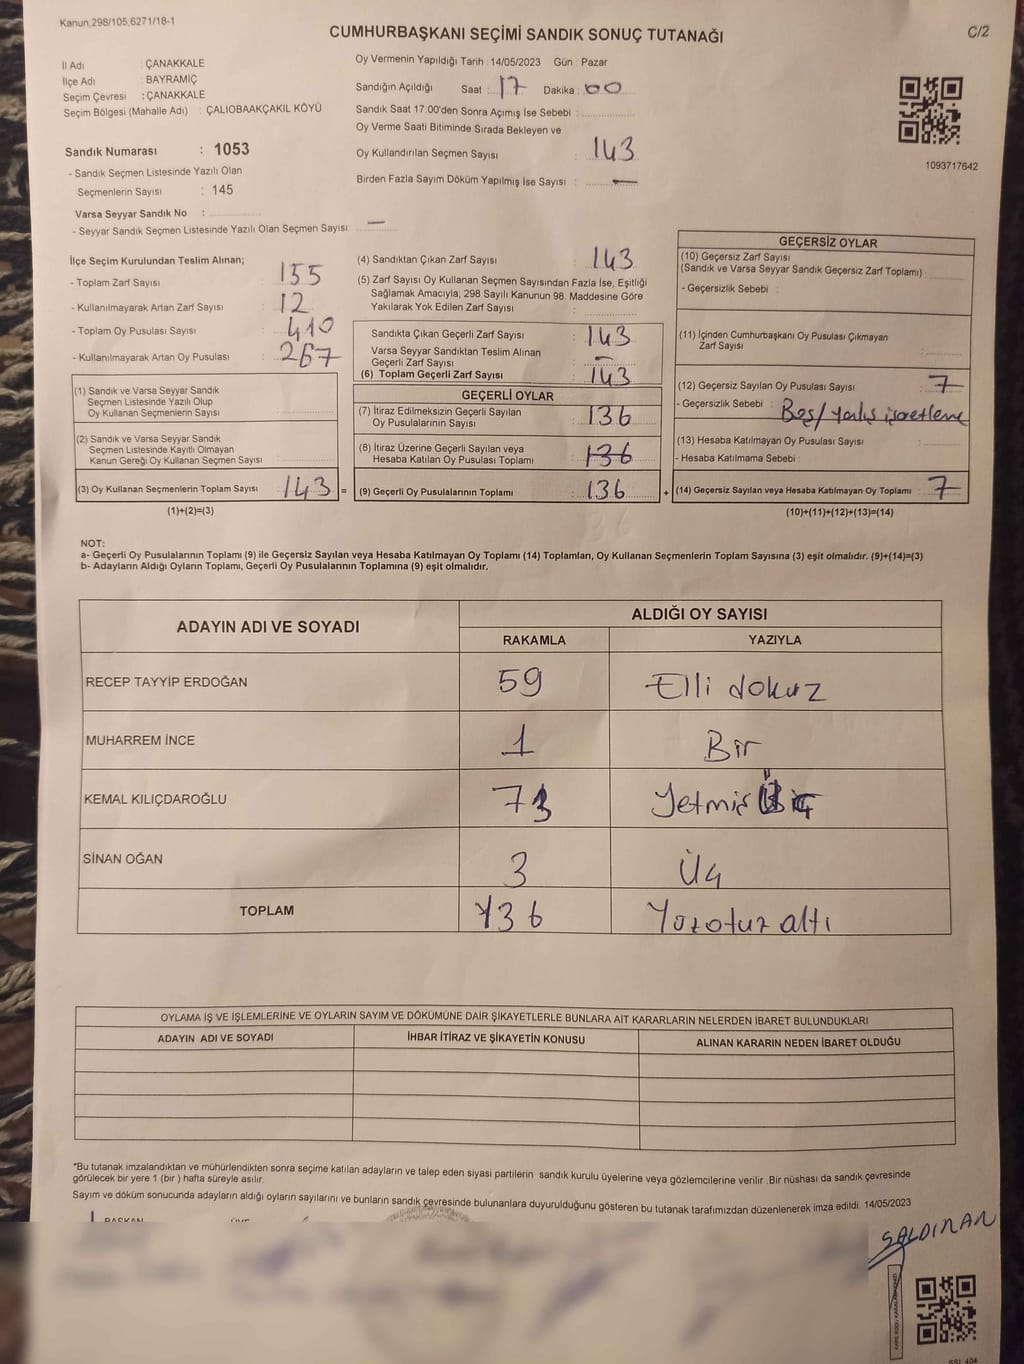 Kanun,298/105,6271/18-1
C/2
CUMHURBAŞKANI SEÇİMİ SANDIK SONUÇ TUTANAĞI
İl Adı : ÇANAKKALE
İlçe Adı : BAYRAMİÇ
Seçim Çevresi : ÇANAKKALE
Seçim Bölgesi (Mahalle Adı) : ÇALIOBAAKÇAKIL KÖYÜ
Sandık Numarası : 1053
- Sandık Seçmen Listesinde Yazılı Olan
Seçmenlerin Sayısı : 145
Varsa Seyyar Sandık No :
- Seyyar Sandık Seçmen Listesinde Yazılı Olan Seçmen Sayısı: —
Oy Vermenin Yapıldığı Tarih : 14/05/2023 Gün : Pazar
Sandığın Açıldığı Saat : 17 Dakika : 00
Sandık Saat 17:00'den Sonra Açımış İse Sebebi :
Oy Verme Saati Bitiminde Sırada Bekleyen ve
Oy Kullandırılan Seçmen Sayısı : 143
Birden Fazla Sayım Döküm Yapılmış İse Sayısı : —
1093717642
İlçe Seçim Kurulundan Teslim Alınan;
- Toplam Zarf Sayısı : 155
- Kullanılmayarak Artan Zarf Sayısı : 12
- Toplam Oy Pusulası Sayısı : 410
- Kullanılmayarak Artan Oy Pusulası : 267
(1) Sandık ve Varsa Seyyar Sandık
Seçmen Listesinde Yazılı Olup
Oy Kullanan Seçmenlerin Sayısı :
(2) Sandık ve Varsa Seyyar Sandık
Seçmen Listesinde Kayıtlı Olmayan
Kanun Gereği Oy Kullanan Seçmen Sayısı :
(3) Oy Kullanan Seçmenlerin Toplam Sayısı : 143 =
(1)+(2)=(3)
(4) Sandıktan Çıkan Zarf Sayısı : 143
(5) Zarf Sayısı Oy Kullanan Seçmen Sayısından Fazla İse, Eşitliği
Sağlamak Amacıyla; 298 Sayılı Kanunun 98. Maddesine Göre
Yakılarak Yok Edilen Zarf Sayısı :
Sandıkta Çıkan Geçerli Zarf Sayısı : 143
Varsa Seyyar Sandıktan Teslim Alınan
Geçerli Zarf Sayısı : —
(6) Toplam Geçerli Zarf Sayısı : 143
GEÇERLİ OYLAR
(7) İtiraz Edilmeksizin Geçerli Sayılan
Oy Pusulalarının Sayısı : 136
(8) İtiraz Üzerine Geçerli Sayılan veya
Hesaba Katılan Oy Pusulası Toplamı : 136
(9) Geçerli Oy Pusulalarının Toplamı : 136 +
GEÇERSİZ OYLAR
(10) Geçersiz Zarf Sayısı
(Sandık ve Varsa Seyyar Sandık Geçersiz Zarf Toplamı) :
- Geçersizlik Sebebi :
(11) İçinden Cumhurbaşkanı Oy Pusulası Çıkmayan
Zarf Sayısı :
(12) Geçersiz Sayılan Oy Pusulası Sayısı : 7
- Geçersizlik Sebebi : Boş/yanlış işaretleme
(13) Hesaba Katılmayan Oy Pusulası Sayısı :
- Hesaba Katılmama Sebebi :
(14) Geçersiz Sayılan veya Hesaba Katılmayan Oy Toplamı : 7
(10)+(11)+(12)+(13)=(14)
NOT:
a- Geçerli Oy Pusulalarının Toplamı (9) ile Geçersiz Sayılan veya Hesaba Katılmayan Oy Toplamı (14) Toplamları, Oy Kullanan Seçmenlerin Toplam Sayısına (3) eşit olmalıdır. (9)+(14)=(3)
b- Adayların Aldığı Oyların Toplamı, Geçerli Oy Pusulalarının Toplamına (9) eşit olmalıdır.
ADAYIN ADI VE SOYADI ALDIĞI OY SAYISI
RAKAMLA YAZIYLA
RECEP TAYYİP ERDOĞAN 59 Elli dokuz
MUHARREM İNCE 1 Bir
KEMAL KILIÇDAROĞLU 73 Yetmiş
SİNAN OĞAN 3 Üç
TOPLAM 136 Yüzotuz altı
OYLAMA İŞ VE İŞLEMLERİNE VE OYLARIN SAYIM VE DÖKÜMÜNE DAİR ŞİKAYETLERLE BUNLARA AİT KARARLARIN NELERDEN İBARET BULUNDUKLARI
ADAYIN ADI VE SOYADI İHBAR İTİRAZ VE ŞİKAYETİN KONUSU ALINAN KARARIN NEDEN İBARET OLDUĞU
*Bu tutanak imzalandıktan ve mühürlendikten sonra seçime katılan adayların ve talep eden siyasi partilerin sandık kurulu üyelerine veya gözlemcilerine verilir .Bir nüshası da sandık çevresinde
görülecek bir yere 1 (bir ) hafta süreyle asılır.
Sayım ve döküm sonucunda adayların aldığı oyların sayılarını ve bunların sandık çevresinde bulunanlara duyurulduğunu gösteren bu tutanak tarafımızdan düzenlenerek imza edildi. 14/05/2023
BAŞKAN
SALDIRAN